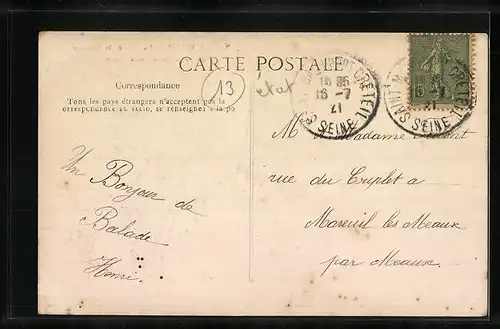 CARTE POSTALE
Correspondance
Tous les pays étrangers n'acceptent pas la
correspondance au recto, se renseigner à la po
13
état
CRETEIL
16 35
16 -7
21
SEINE
CRETEIL
-7
21
SEINE
15
M Madame
Un Bonjour de
Balade
Henri.
rue du
Mareuil les Meaux
par Meaux.